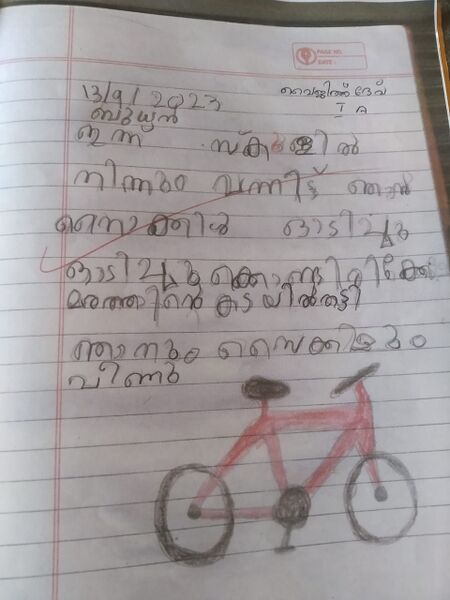 PAGE NO.
DATE:
13/9/2023
വൈജിത്ത് ദേവ്
ബുധൻ
I A
ഇന്ന് സ്കൂളിൽ
നിന്നും വന്നിട്ട് ഞാൻ
സൈക്കിൾ ഓടിച്ചു
ഓടിച്ചു കൊണ്ടിരിക്കേ
മരത്തിന്റെ കടയിൽതട്ടി
ഞാനും സൈക്കിളും
വീണു